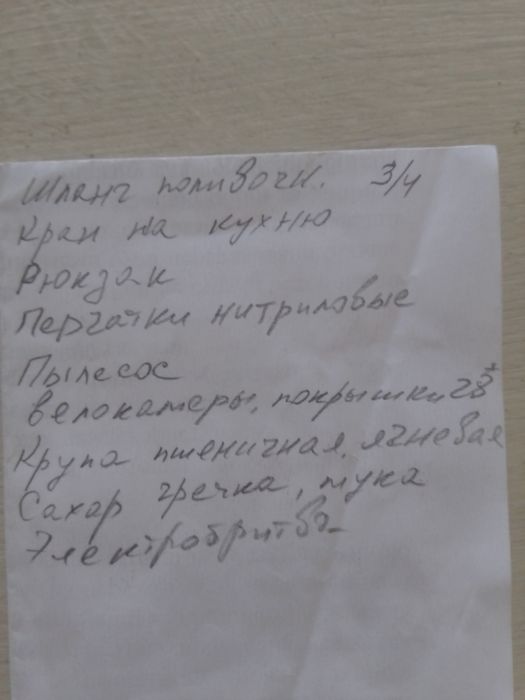 Шланг поливочн. 3/4
Кран на кухню
Рюкзак
Перчатки нитриловые
Пылесос
велокамеры, покрышки 28
Крупа пшеничная, ячневая
Сахар гречка, мука
Электробритва